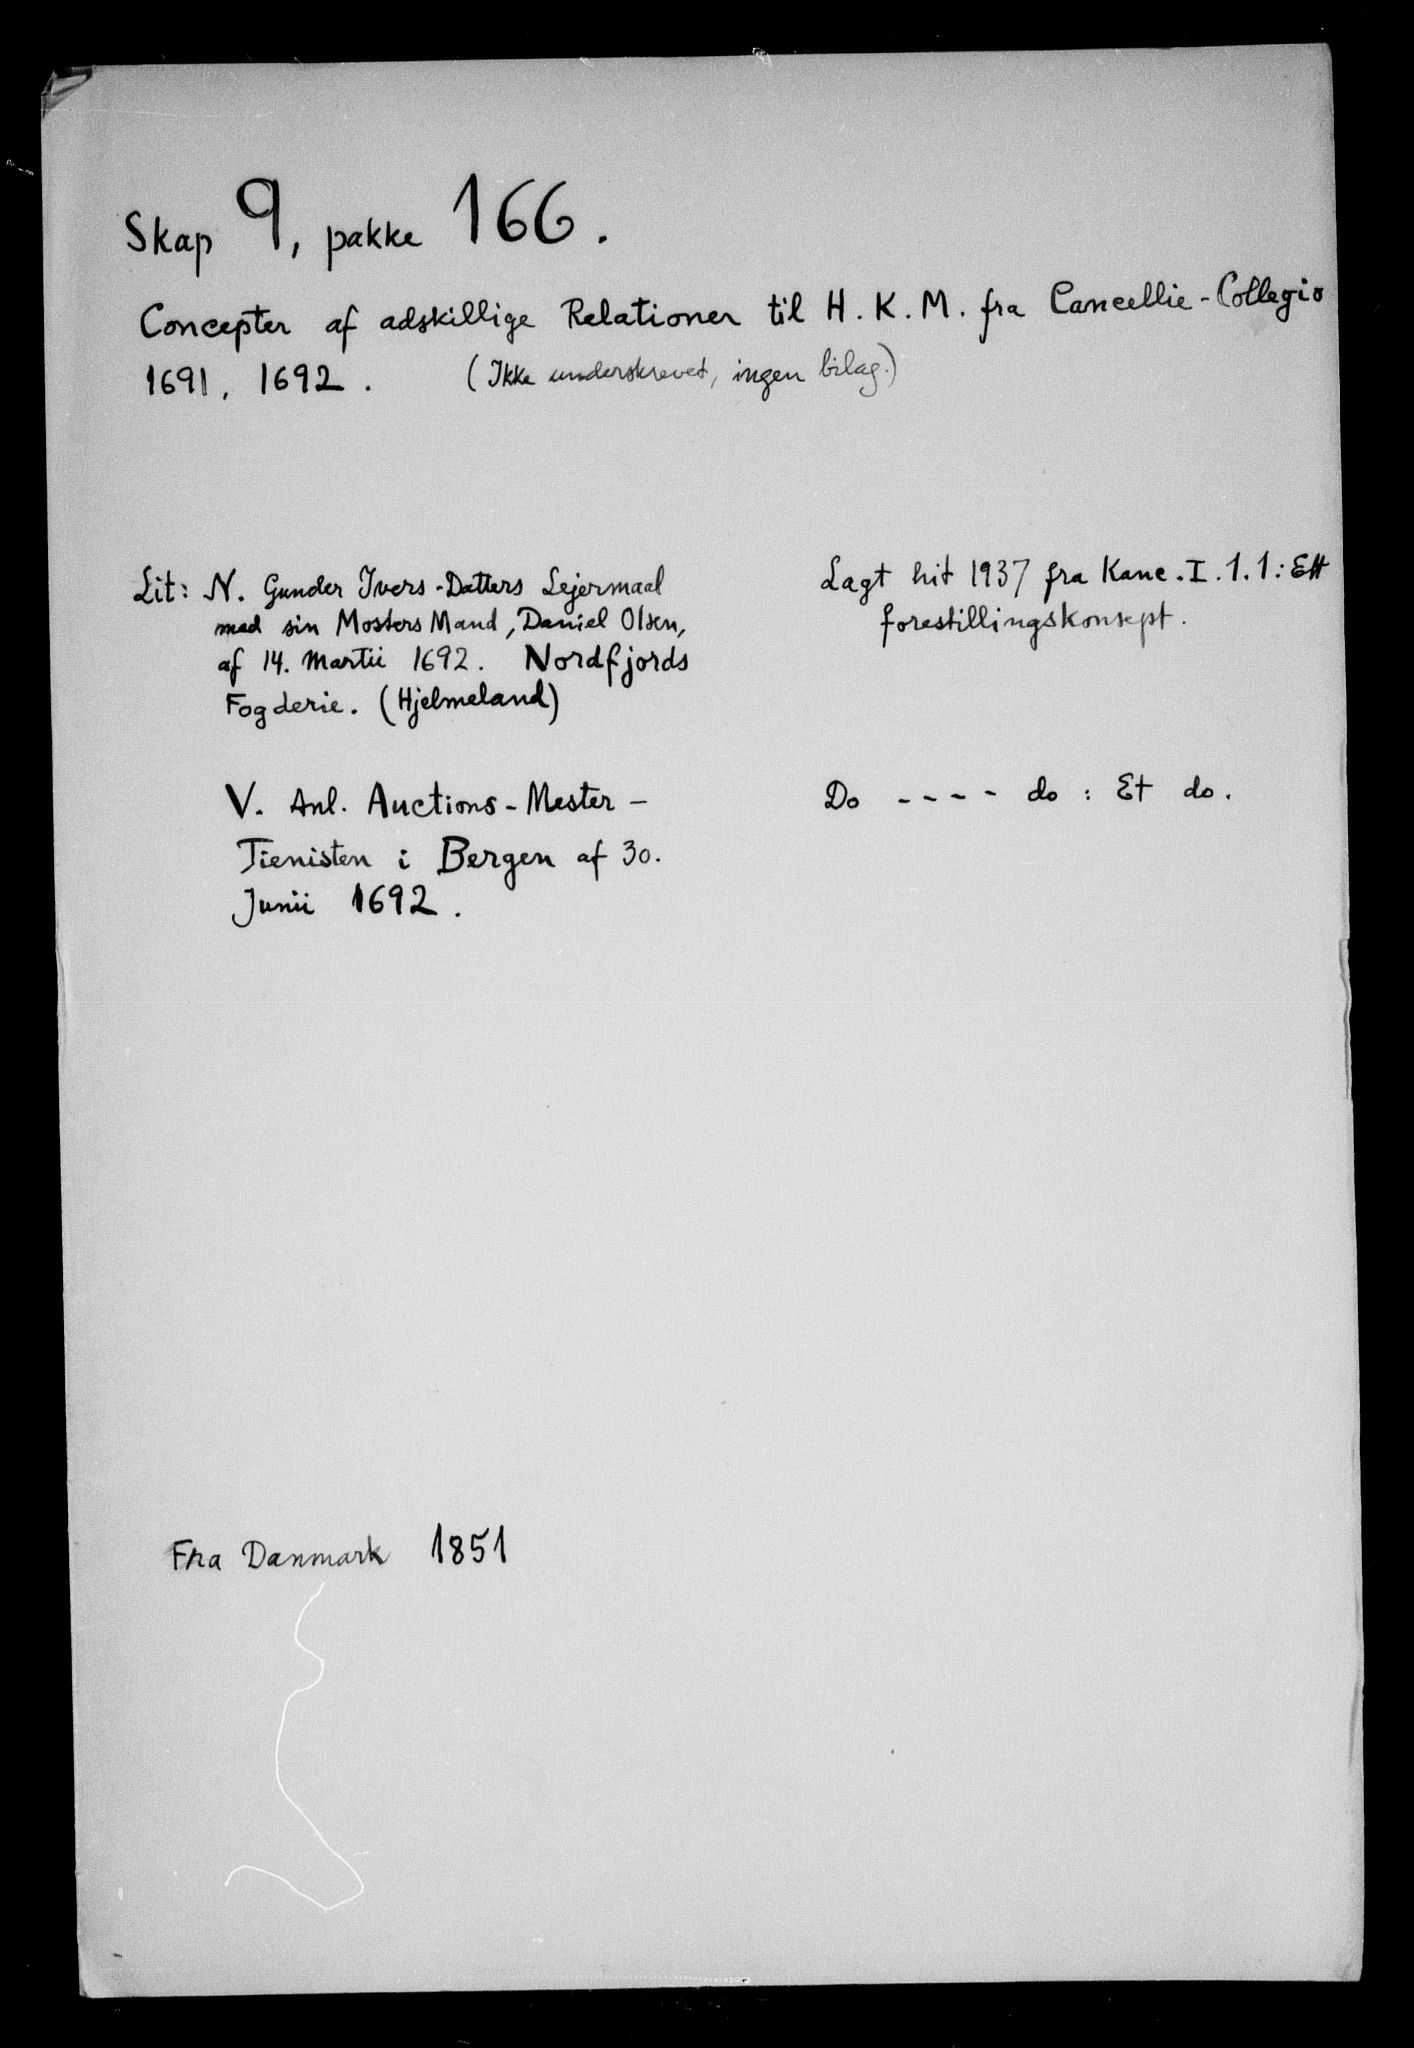 Skap 9, pakke 166.
Concepter af adskillige Relationer til H. K. M. fra Cancellie-Collegio
1691, 1692. (Ikke underskrevet, ingen bilag.)
Lit: N. Gunder Ivers-Datters Lejermaal
med sin Mosters Mand, Daniel Olsen,
af 14. Martii 1692. Nordfjords
Fogderie. (Hjelmeland)
Lagt hit 1937 fra Kanc. I. 1. 1: Ett
forestillingskonsept.
V. Anl. Auctions-Mester-
Tienisten i Bergen af 30.
Junii 1692.
Do - - - - do : Et do.
Fra Danmark 1851